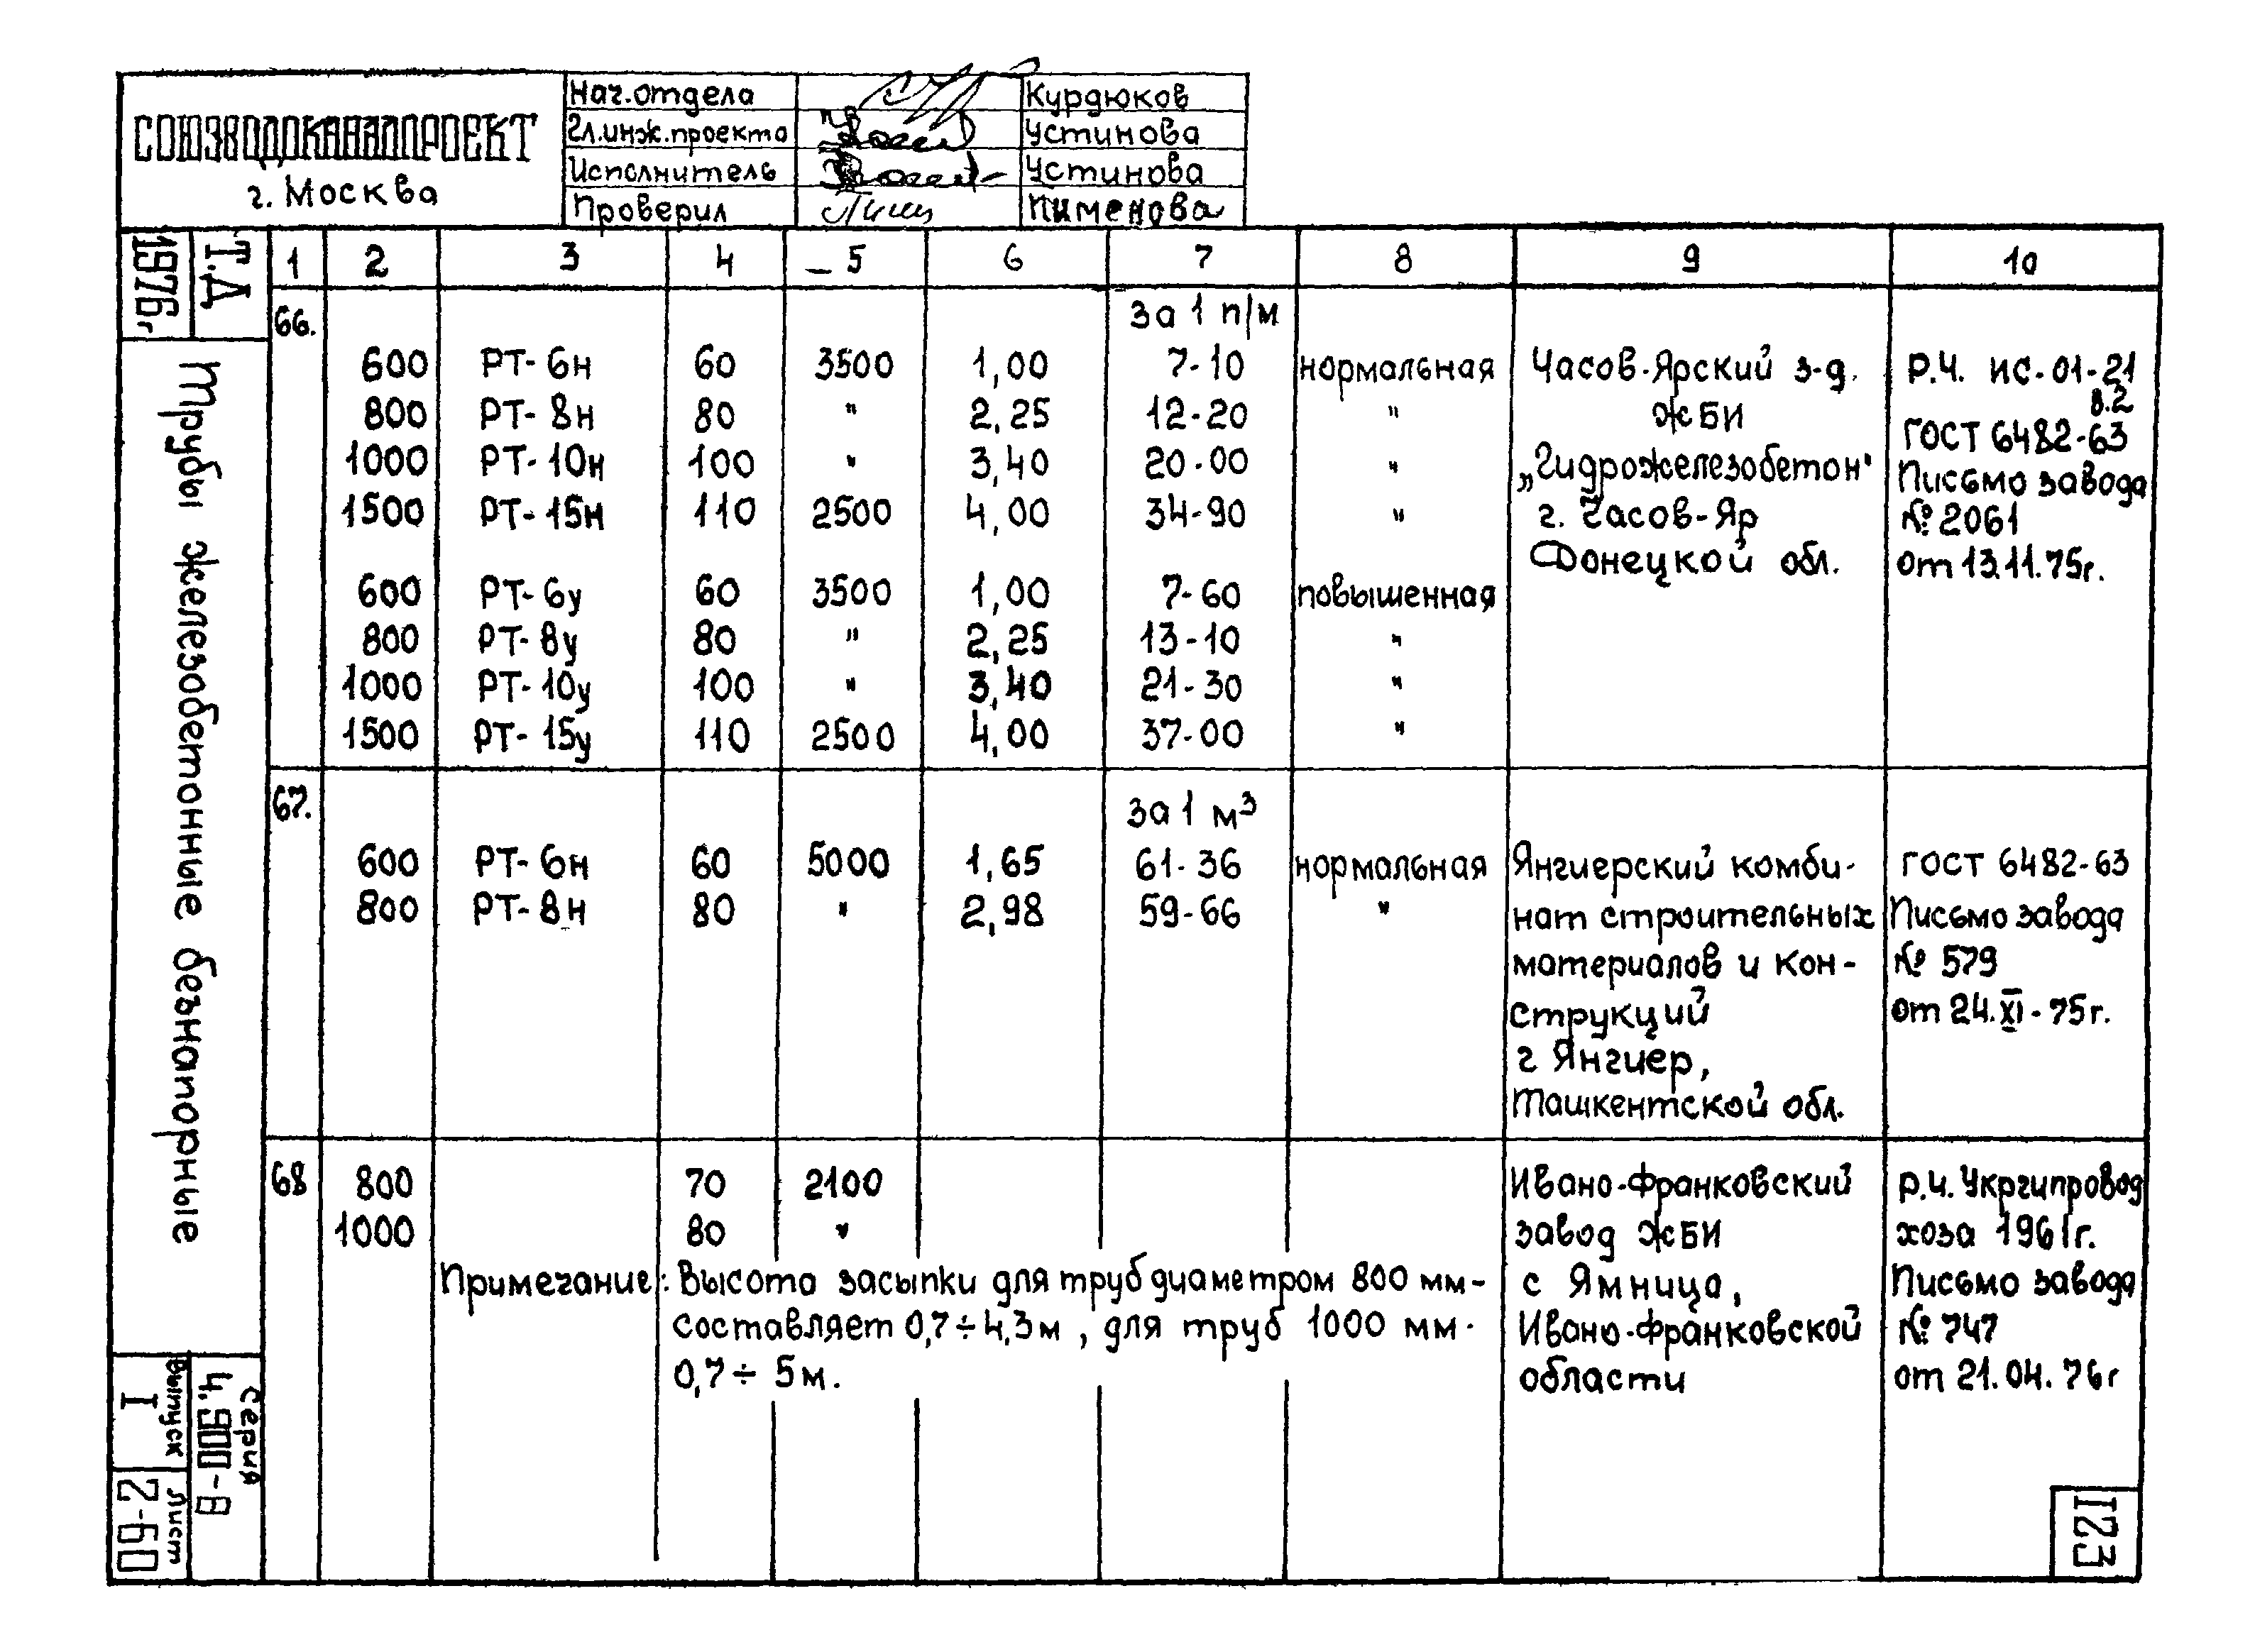 СОЮЗВОДОКАНАЛПРОЕКТ
г. Москва
Нач.отдела Курдюков
Гл.инж.проекта Устинова
Исполнитель Устинова
Проверил Пименова
Т.Д
1976г.
Трубы железобетонные безнапорные
серия
4.900-8
Выпуск
I
Лист
2-60
1 2 3 4 5 6 7 8 9 10
66. за 1 п/м
600 РТ-6н 60 3500 1,00 7-10 нормальная Часов-Ярский з-д. Р.Ч. ИС-01-21
в.2
800 РТ-8н 80 " 2,25 12-20 " ЖБИ ГОСТ 6482-63
1000 РТ-10н 100 " 3,40 20-00 " „Гидрожелезобетон" Письмо завода
1500 РТ-15н 110 2500 4,00 34-90 " г. Часов-Яр № 2061
Донецкой обл. от 13.11.75г.
600 РТ-6у 60 3500 1,00 7-60 повышенная
800 РТ-8у 80 " 2,25 13-10 "
1000 РТ-10у 100 " 3,40 21-30 "
1500 РТ-15у 110 2500 4,00 37-00 "
67. за 1 м³
600 РТ-6н 60 5000 1,65 61-36 нормальная Янгиерский комби- ГОСТ 6482-63
800 РТ-8н 80 " 2,98 59-66 " нат строительных Письмо завода
материалов и кон- № 579
струкций от 24.XI-75г.
г Янгиер,
Ташкентской обл.
68 800 70 2100 Ивано-Франковский р.ч. Укргипровод
1000 80 " завод ЖБИ хоза 1961г.
Примечание: Высота засыпки для труб диаметром 800 мм- с Ямница, Письмо завода
составляет 0,7÷4,3м, для труб 1000 мм. Ивано-Франковской № 747
0,7÷ 5м. области от 21.04.76г
123